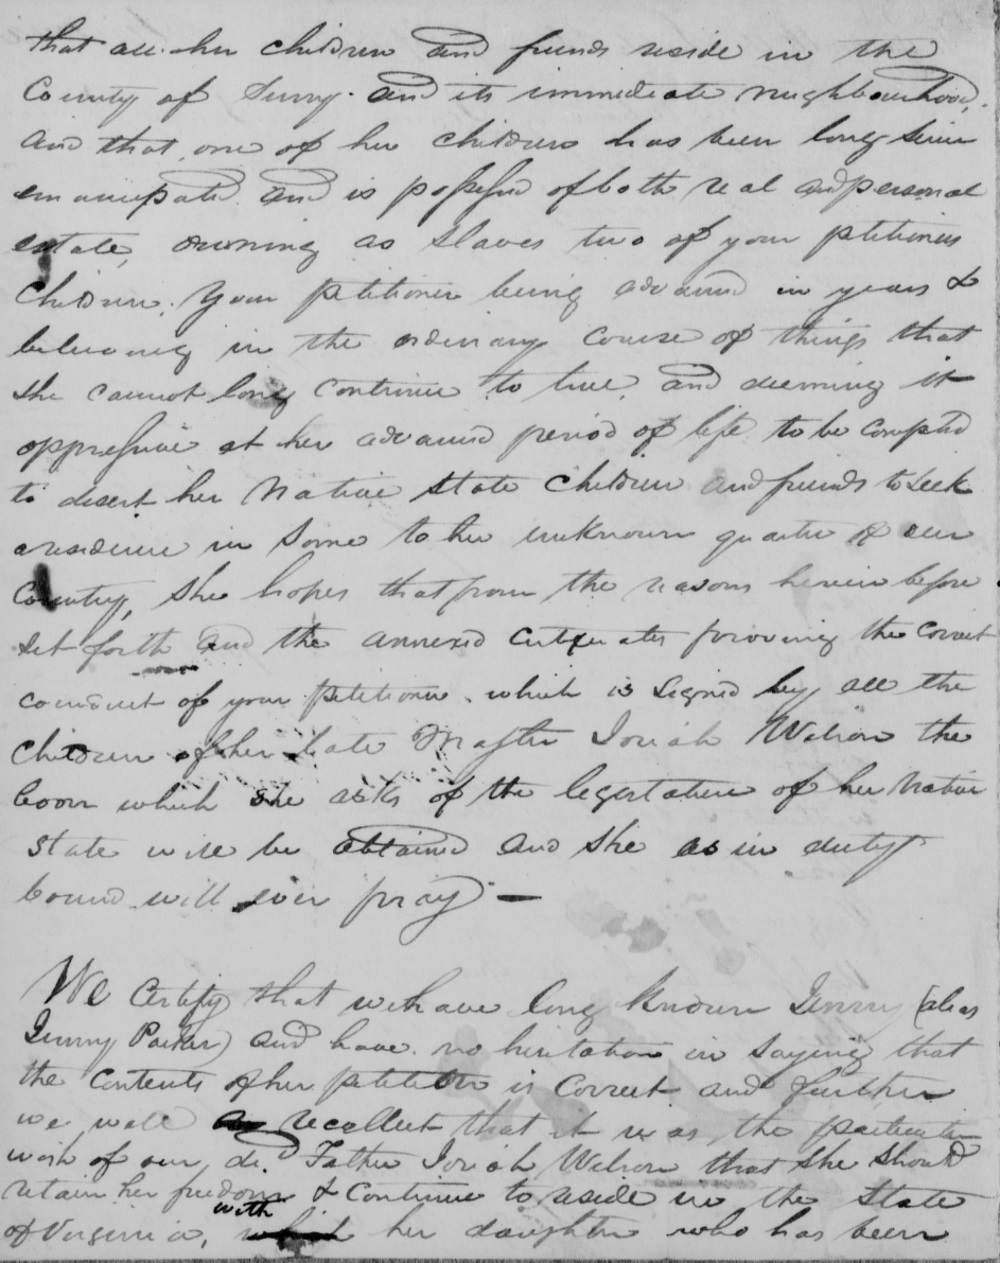 that all her children and friends reside in the
County of Surry and its immediate neighbourhood,
and that one of her children has been long since
emancipated and is possessed of both real and personal
estate, owning as slaves two of your petitioners
children. Your petitioner being advanced in years &
believing in the ordinary course of things that
she cannot long continue to live, and deeming it
oppressive at her advanced period of life to be compelled
to desert her native state children and friends to seek
a residence in some to her unknown quarter of our
Country, she hopes that from the reasons herein before
set forth and the annexed certificates proving the correct
conduct of your petitioner which is signed by all the
children of her late Master Josiah Wilson the
boon which she asks of the legislature of her native
state will be obtained and she as in duty
bound will ever pray —
We Certify that we have long known Jenny (alias
Jenny Parker) and have no hesitation in saying that
the contents of her petition is correct and further
we well recollect that it was the particular
wish of our decd. Father Josiah Wilson that she should
retain her freedom & continue to reside in the State
of Virginia, with her daughter who has been